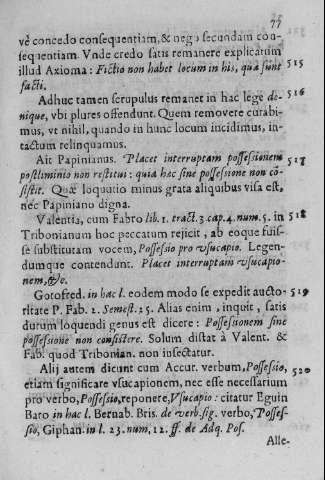 77
vè concedo consequentiam, & nego secundam con-
sequentiam. Vnde credo satis remanere explicatum
illud Axioma: Fictio non habet locum in his, quæ sunt 515
facti.
Adhuc tamen scrupulus remanet in hac lege de- 516
nique, vbi plures offendunt. Quem removere curabi-
mus, vt nihil, quando in hunc locum incidimus, in-
tactum relinquamus.
Ait Papinianus. Placet interruptam possessionem 517
postliminio non restitui: quia hec sine possessione non cõ-
sistit. Quæ loquutio minus grata aliquibus visa est,
nec Papiniano digna.
Valentia, cum Fabro lib. 1. tract. 3. cap. 4. num. 5. in 518
Tribonianum hoc peccatum rejicit, ab eoque fuis-
sè substitutam vocem, Possessio pro vsucapio. Legen-
dumque contendunt. Placet interruptam vsucapio-
nem, &c.
Gotofred. in hac l. eodem modo se expedit aucto- 519
ritate P. Fab. 2. Semest. 25. Alias enim, inquit, satis
durum loquendi genus est dicere: Possessionem sine
possessione non consistere. Solum distat à Valent. &
Fab. quod Tribonian. non insectatur.
Alij autem dicunt cum Accur. verbum, Possessio, 520
etiam significare vsucapionem, nec esse necessarium
pro verbo, Possessio, reponere, Vsucapio: citatur Eguin
Baro in hac l. Bernab. Bris. de verb. sig. verbo, Posses-
sio, Giphan. in l. 23. num. 12. ff. de Adq. Pos.
Alle-